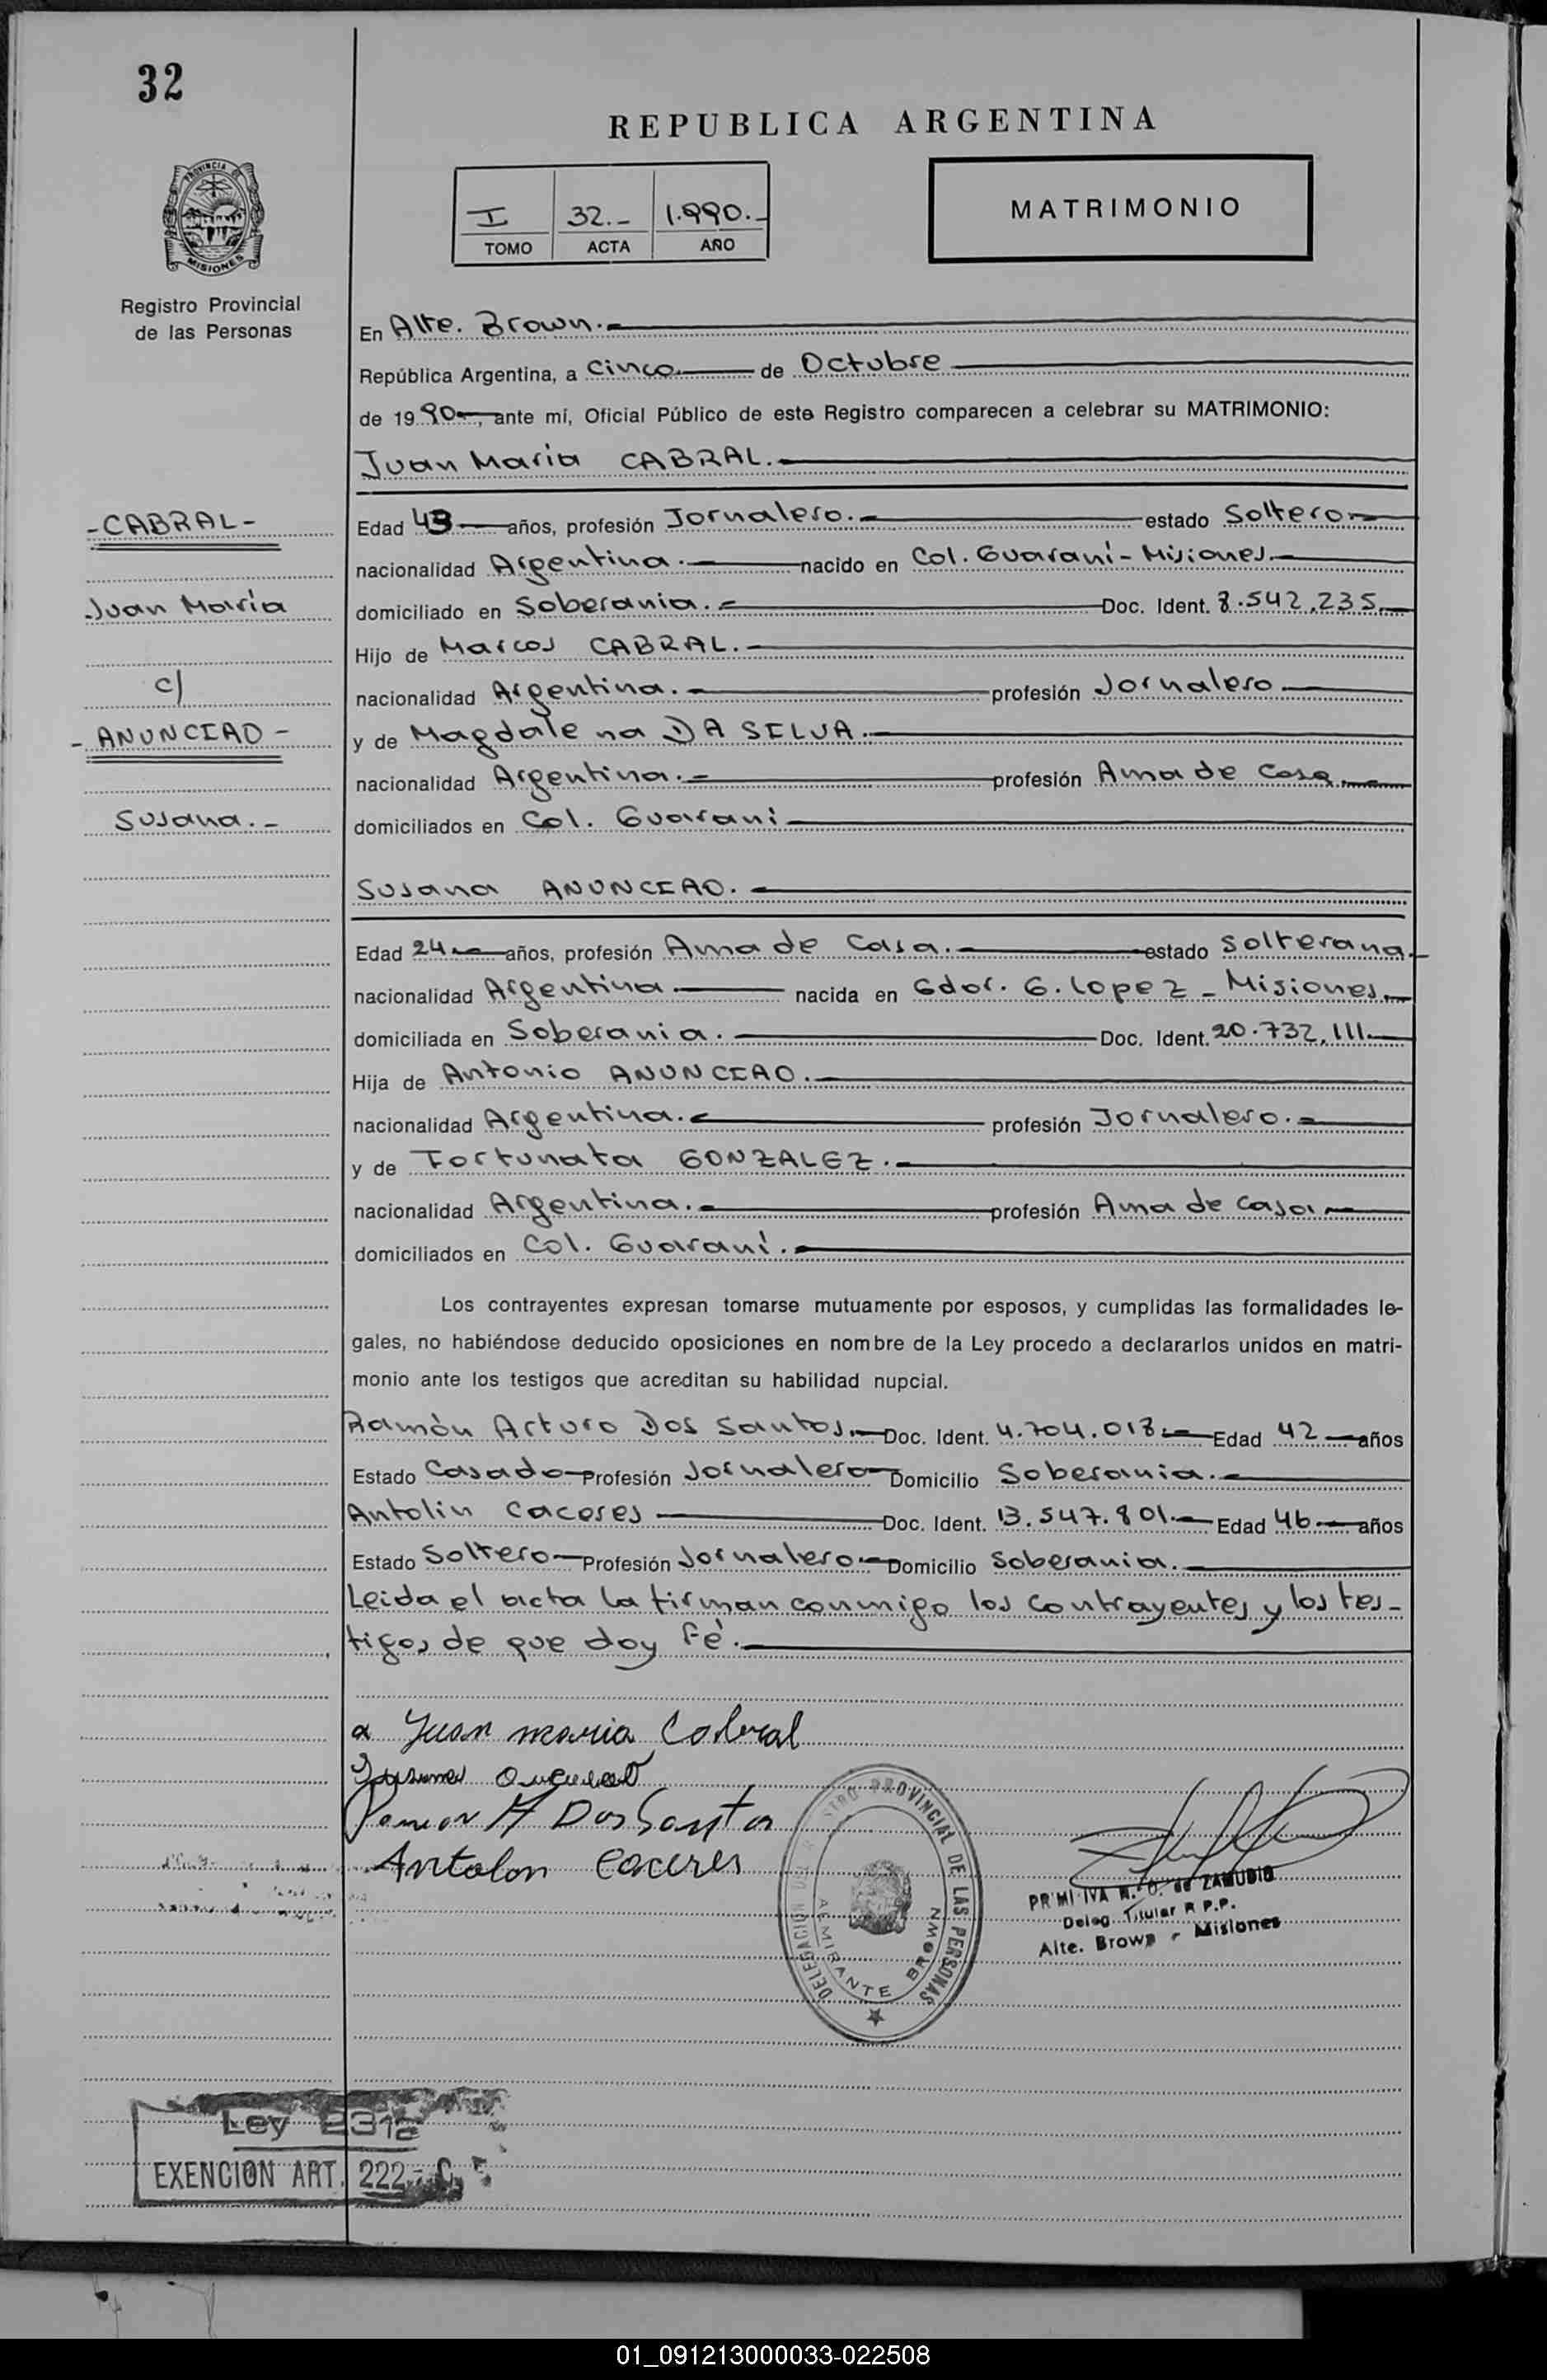 32
REPUBLICA ARGENTINA
PROVINCIA DE
MISIONES
I 32.- 1.990.-
TOMO ACTA AÑO
MATRIMONIO
Registro Provincial
de las Personas
En Alte. Brown.-
República Argentina, a cinco de Octubre
de 1990, ante mí, Oficial Público de este Registro comparecen a celebrar su MATRIMONIO:
Juan Maria CABRAL.-
-CABRAL-
Juan María
c/
-ANUNCIAO-
Susana.-
Edad 43 años, profesión Jornalero.- estado Soltero-
nacionalidad Argentina.- nacido en Col. Guaraní-Misiones.-
domiciliado en Soberania.- Doc. Ident. 8.542.235.-
Hijo de Marcos CABRAL.-
nacionalidad Argentina.- profesión Jornalero
y de Magdalena DA SILVA.-
nacionalidad Argentina.- profesión Ama de Casa.-
domiciliados en Col. Guarani
Susana ANUNCIAO.-
Edad 24 años, profesión Ama de Casa.- estado Solterana
nacionalidad Argentina.- nacida en Gdor. G. Lopez - Misiones.-
domiciliada en Soberania.- Doc. Ident. 20.732.111.-
Hija de Antonio ANUNCIAO.-
nacionalidad Argentina.- profesión Jornalero.-
y de Fortunata GONZALEZ.-
nacionalidad Argentina.- profesión Ama de Casa-
domiciliados en Col. Guaraní.-
Los contrayentes expresan tomarse mutuamente por esposos, y cumplidas las formalidades le-
gales, no habiéndose deducido oposiciones en nombre de la Ley procedo a declararlos unidos en matri-
monio ante los testigos que acreditan su habilidad nupcial.
Ramón Arturo Dos Santos.- Doc. Ident. 4.704.018.- Edad 42 años
Estado Casado- Profesión Jornalero- Domicilio Soberania.-
Antolin Caceres Doc. Ident. 13.547.801.- Edad 46.- años
Estado Soltero- Profesión Jornalero- Domicilio Soberania.-
Leida el acta la firman conmigo los contrayentes y los tes-
tigos de que doy fé.-
a Juan maria Cabral
Ramon A Dos Santos
Antolon Caceres
PROVINCIAL DE LAS PERSONAS
ALMIRANTE BROWN
de ZAMUDIO
Deleg. Titular R.P.P.
Alte. Brown - Misiones
Ley
EXENCION ART. 222
01_091213000033-022508